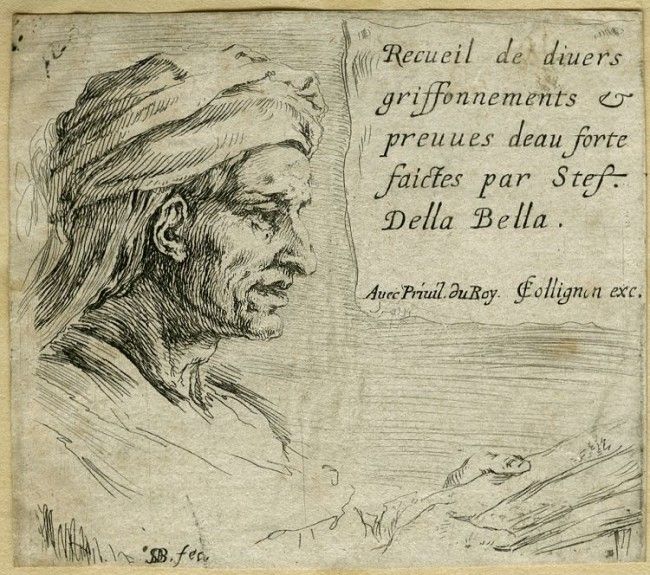 Recueil de diuers
griffonnements &
preuues deau forte
faictes par Stef.
Della Bella.
Auec Priuil. du Roy. FCollignon exc.
SDB. fec.